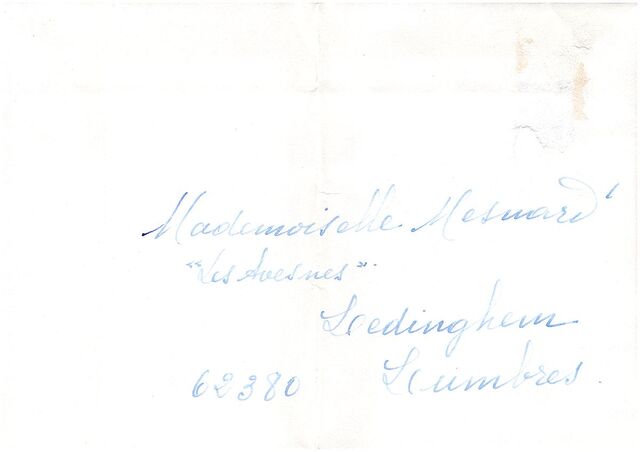 Mademoiselle Mesnard
"Les Avesnes"
Ledinghem
62380 Lumbres